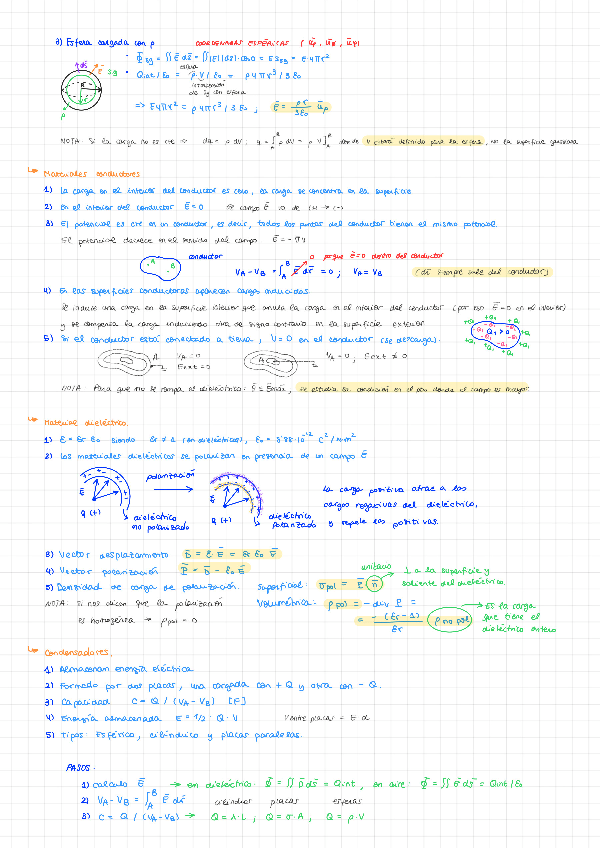 d) Esfera cargada con ρ COORDENADAS ESFÉRICAS ( ūρ, ūθ, ūφ)
Φ sg = ∬ Ē ds̄ = ∬ |E| |ds| · cos0 = E Ssg = E 4πr²
esfera
Qint / ε0 = ρ · V / ε0 = ρ 4πr³ / 3 ε0
intersección
de sg con esfera
⇒ E 4πr² = ρ 4πr³ / 3 ε0 ; Ē = ρr / 3ε0 ūρ
NOTA: Si la carga no es cte ⇒ dq = ρ dV ; q = ∫ ρ dV = ρ V] donde V estará definido para la esfera, no la superficie gaussiana
↳ Materiales conductores
1) La carga en el interior del conductor es cero, la carga se concentra en la superficie
2) En el interior del conductor Ē = 0 El campo Ē va de (+) → (-)
3) El potencial es cte en un conductor, es decir, todos los puntos del conductor tienen el mismo potencial.
El potencial decrece en el sentido del campo Ē = - ∇V
conductor 0 porque Ē=0 dentro del conductor
A B VA - VB = ∫ Ē dr̄ = 0 ; VA = VB (di siempre sale del conductor)
4) En las superficies conductoras aparecen cargas inducidas
Se induce una carga en la superficie interior que anula la carga en el interior del conductor (por eso Ē = 0 en el interior)
y se compensa la carga induciendo otra de signo contrario en la superficie exterior
5) Si el conductor está conectado a tierra, V = 0 en el conductor (se descarga).
A VA = 0 A VA = 0 , Eext ≠ 0
Eext = 0
NOTA: Para que no se rompa el dieléctrico: E ≤ Emáx, se estudia la condición en el pto donde el campo es mayor
↳ Material dieléctrico.
1) ε = εr ε0 siendo εr ≠ 1 (en dieléctricos), ε0 = 8'85·10⁻¹² C² / N·m²
2) Los materiales dieléctricos se polarizan en presencia de un campo Ē
polarización
La carga positiva atrae a las
cargas negativas del dieléctrico,
y repele las positivas.
Q (+) dieléctrico no polarizado Q (+) dieléctrico polarizado
3) Vector desplazamiento D̄ = ε Ē = εr ε0 Ē
4) Vector polarización P̄ = D̄ - ε0 Ē
unitario ⊥ a la superficie y
saliente del dieléctrico.
5) Densidad de carga de polarización. Superficial: σpol = P̄ n̄
NOTA: Si nos dicen que la polarización Volumétrica: ρpol = - div P̄ =
es homogénea → ρpol = 0 = - (εr - 1) / εr ρ no pol
Es la carga
que tiene el
dieléctrico entero
↳ Condensadores.
1) Almacenan energía eléctrica
2) Formado por dos placas, una cargada con + Q y otra con - Q.
3) Capacidad C = Q / (VA - VB) [F]
4) Energía almacenada E = 1/2 · Q · V Ventre placas = E d
5) Tipos: Esférico, cilíndrico y placas paralelas.
PASOS:
1) Calculo Ē → en dieléctrico: Φ = ∬ D̄ ds̄ = Qint , en aire: Φ = ∬ Ē ds̄ = Qint / ε0
2) VA - VB = ∫ Ē dr̄ cilindros placas esferas
3) C = Q / (VA - VB) → Q = λ · L ; Q = σ · A , Q = ρ · V